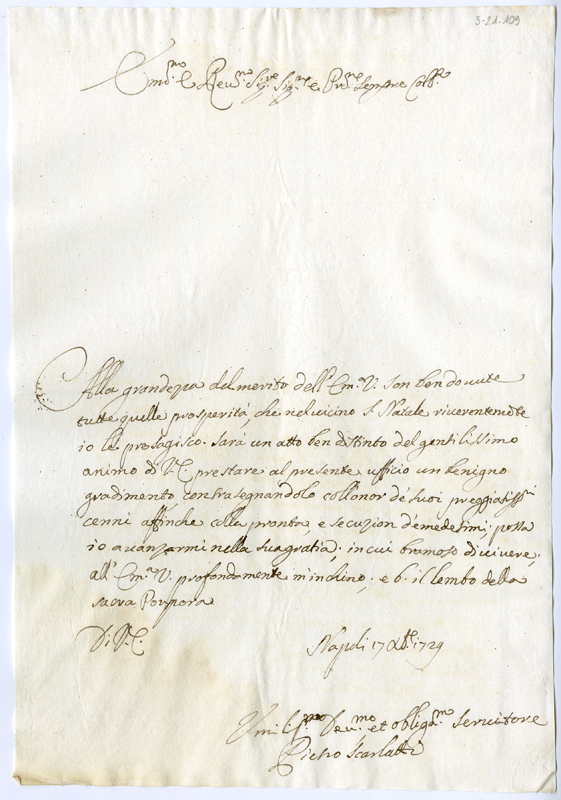 3-21-109
Em̃o. e Reu.mo Sig.re Sig.re e Pr̃ne sempre Coll.mo
Alla grandezza del merito dell' Em.a V. son ben douute
tutte quelle prosperità, che nel uicino S. Natale riuerentem.te
io le presagisco. Sarà un atto ben distinto del gentilissimo
animo di V.E. prestare al presente ufficio un benigno
gradimento contrasegnandolo coll'onor de' suoi preggiatiss.mi
cenni affinche colla pronta, e secuzion d'emedesimi, possa
io auanzarmi nella sua gratia; in cui bramoso di uiuere,
all' Em.a V. profondamente m'inchino, e b. il lembo della
sacra Porpora
Di V.E.
Napoli 17 Xbre 1729
Umil.mo Deu.mo et obliga.mo Seruitore
Pietro Scarlatti